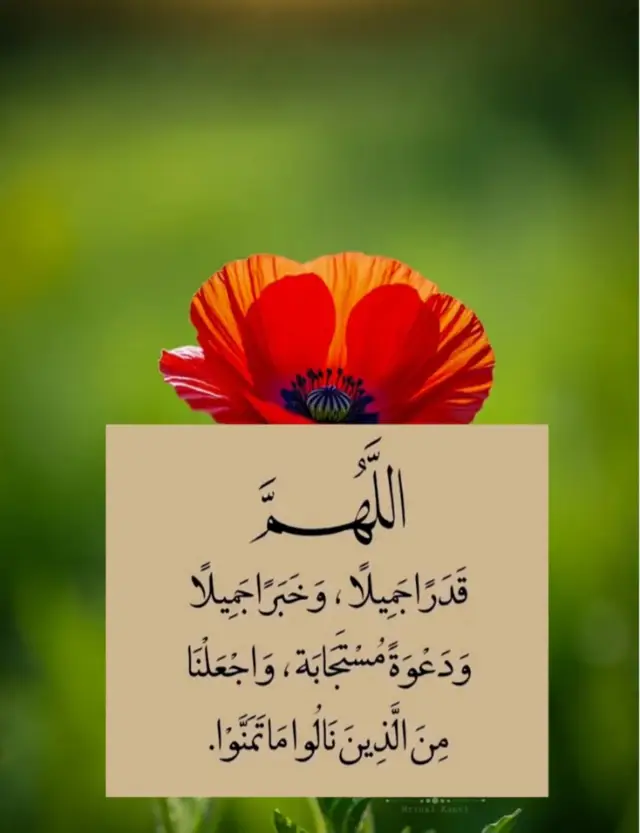 اللَّهُمَّ
قَدَرًا جَمِيلًا، وَخَبَرًا جَمِيلًا
وَدَعْوَةً مُسْتَجَابَة، وَاجْعَلْنَا
مِنَ الَّذِينَ نَالُوا مَا تَمَنَّوْا.